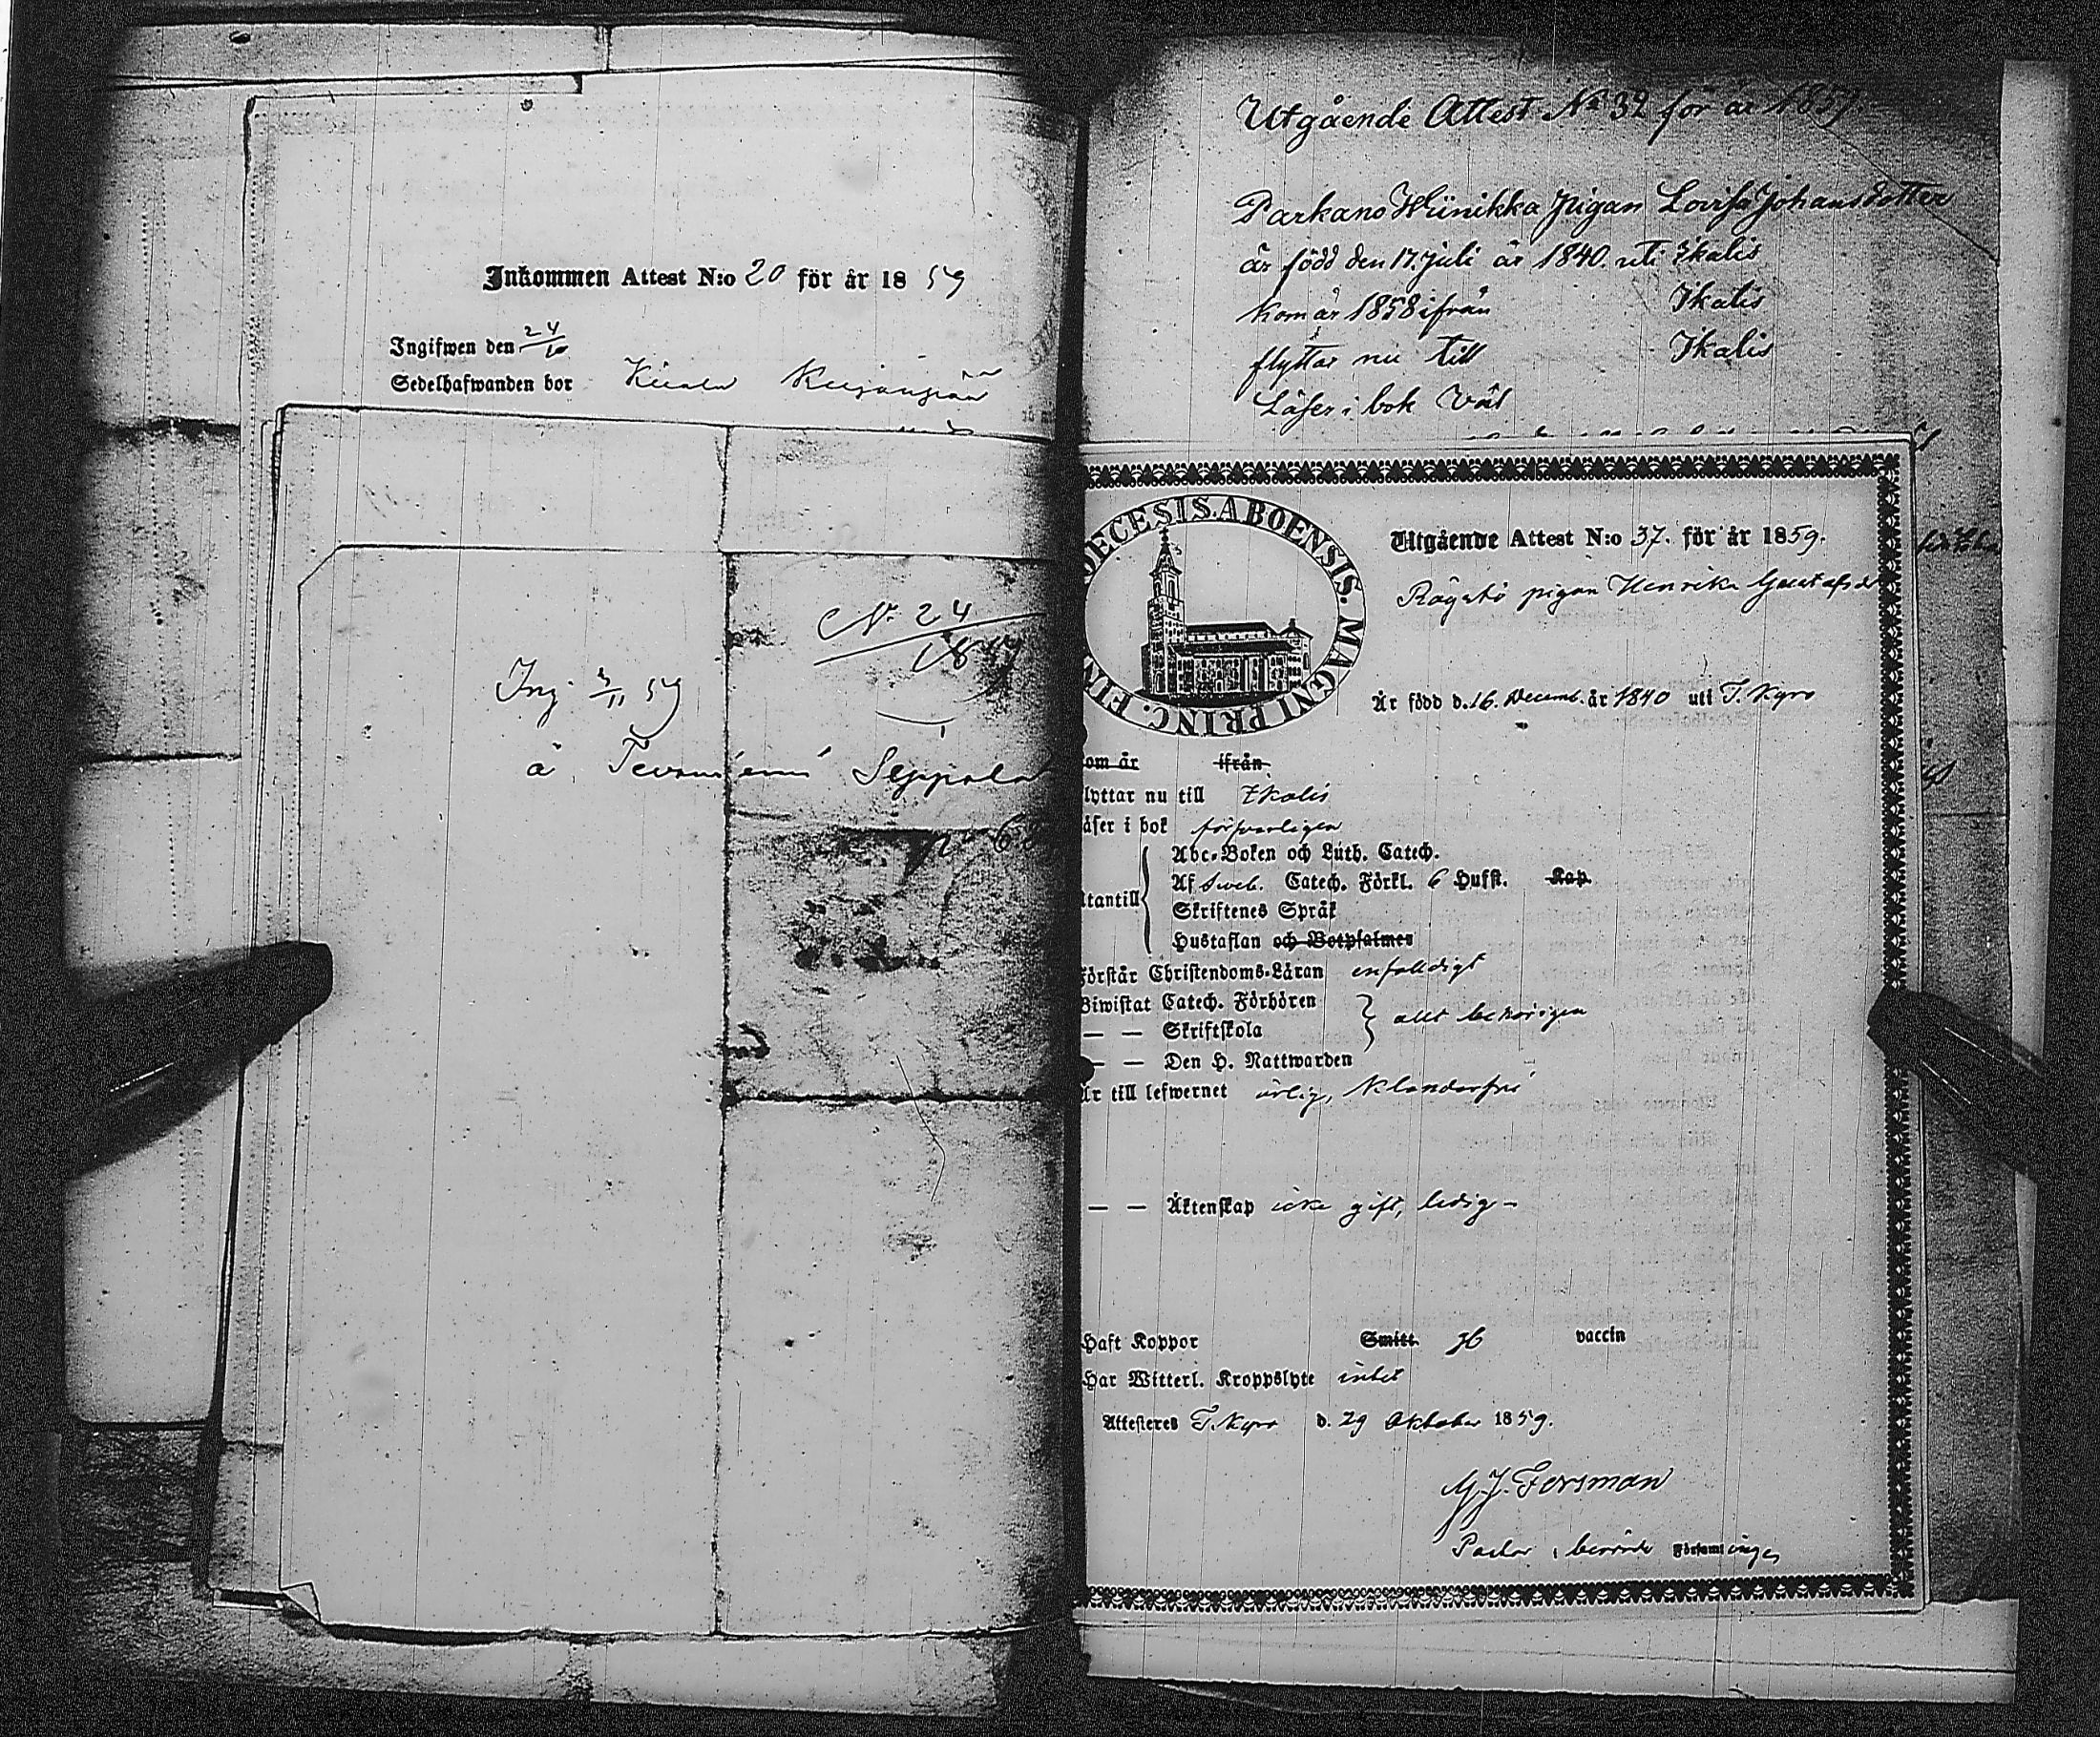 Inkommen Attest N:o 20 för år 1859
Ingifwen den 24/10
Sedelhafwanden bor
N. 24
1859
Ing. 3/11 59
à Seppala
Utgående Attest No 32 för år 1859.
Parkano Hiinikka Pigan Lovisa Johansdotter
är född den 17. Juli år 1840. uti Ikalis
kom år 1858 ifrån Ikalis
flyttar nu till Ikalis
Läser i bok väl
DIOECESIS. ABOENSIS. MAGNI PRINC. FIN
Utgående Attest N:o 37. för år 1859.
pigan Henrika Gustafsd
Är född d. 16. Decemb. år 1840 uti T. Kyro
om år ifrån
lyttar nu till Ikalis
äser i bok försvarligen
Abc-Boken och Luth. Catech.
Af Sveb. Catech. Förkl. 6 Hufst. Kap.
tantill
Skriftenes Språk
Hustaflan och Botpsalmer
Förstår Christendoms-Läran enfaldigt
Biwistat Catech. Förhören
— — Skriftskola
allt behörigen
— — Den H. Nattwarden
Är till lefwernet ärlig, klanderfri
— — Äktenskap icke gift, ledig –
Haft Koppor Smitt. vaccin
Har Witterl. Kroppslyte intet
Attesteres T. Kyro d. 29 Oktober 1859.
M. J. Forsman
Pastor i berörde Församlingen